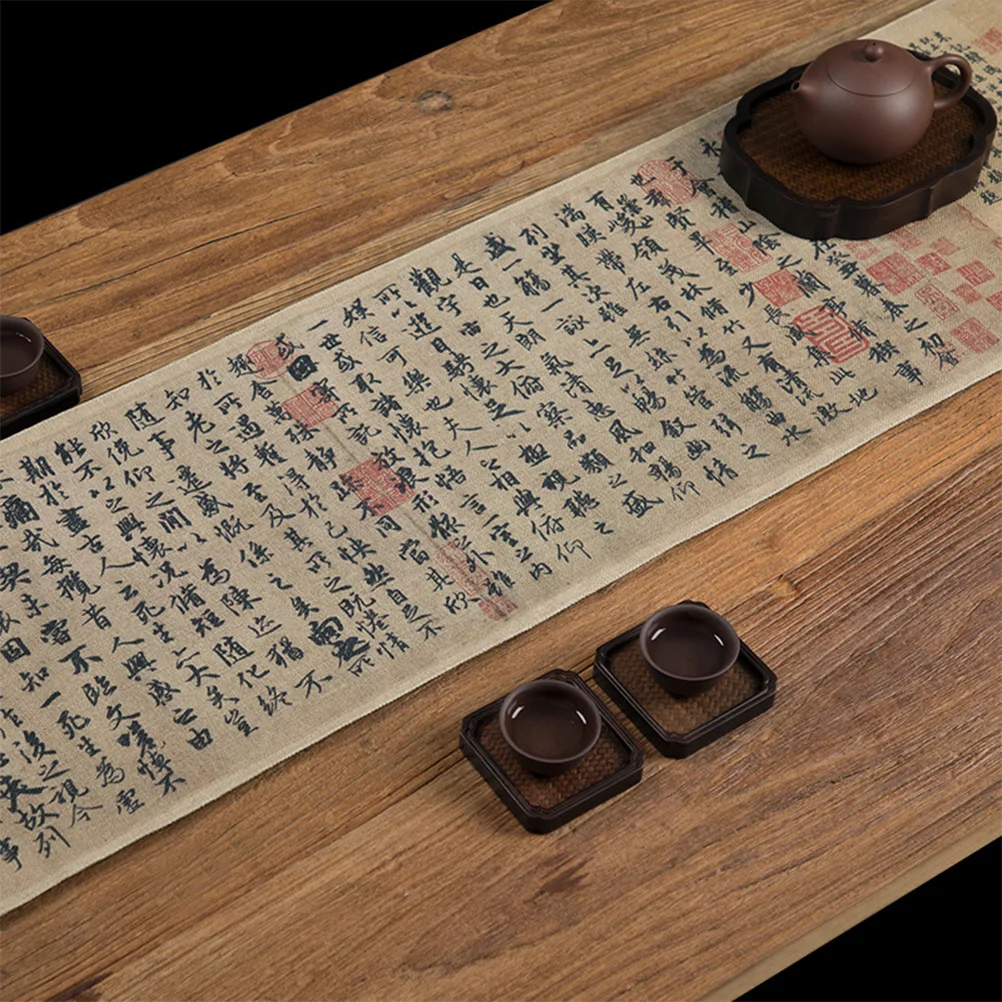 在癸丑暮春之初會
于會稽山陰之蘭亭脩稧事
也群賢畢至少長咸集此地
有崇山峻領茂林脩竹又有清流激
湍暎帶左右引以為流觴曲水
列坐其次雖無絲竹管弦之
盛一觴一詠亦足以暢敘幽情
是日也天朗氣清惠風和暢仰
觀宇宙之大俯察品類之盛
所以遊目騁懷足以極視聽之
娛信可樂也夫人之相與俯仰
一世或取諸懷抱悟言一室之內
或因寄所託放浪形骸之外雖
趣舍萬殊靜躁不同當其欣
於所遇蹔得於己怏然自足不
知老之將至及其所之既惓情
隨事遷感慨係之矣向之所
欣俛仰之閒以為陳迹猶不
能不以之興懷況脩短隨化終
期於盡古人云死生亦大矣豈
痛哉每攬昔人興感之由
契未嘗不臨文嗟悼不
固知一死生為虛
作後之視今
夫故列
事